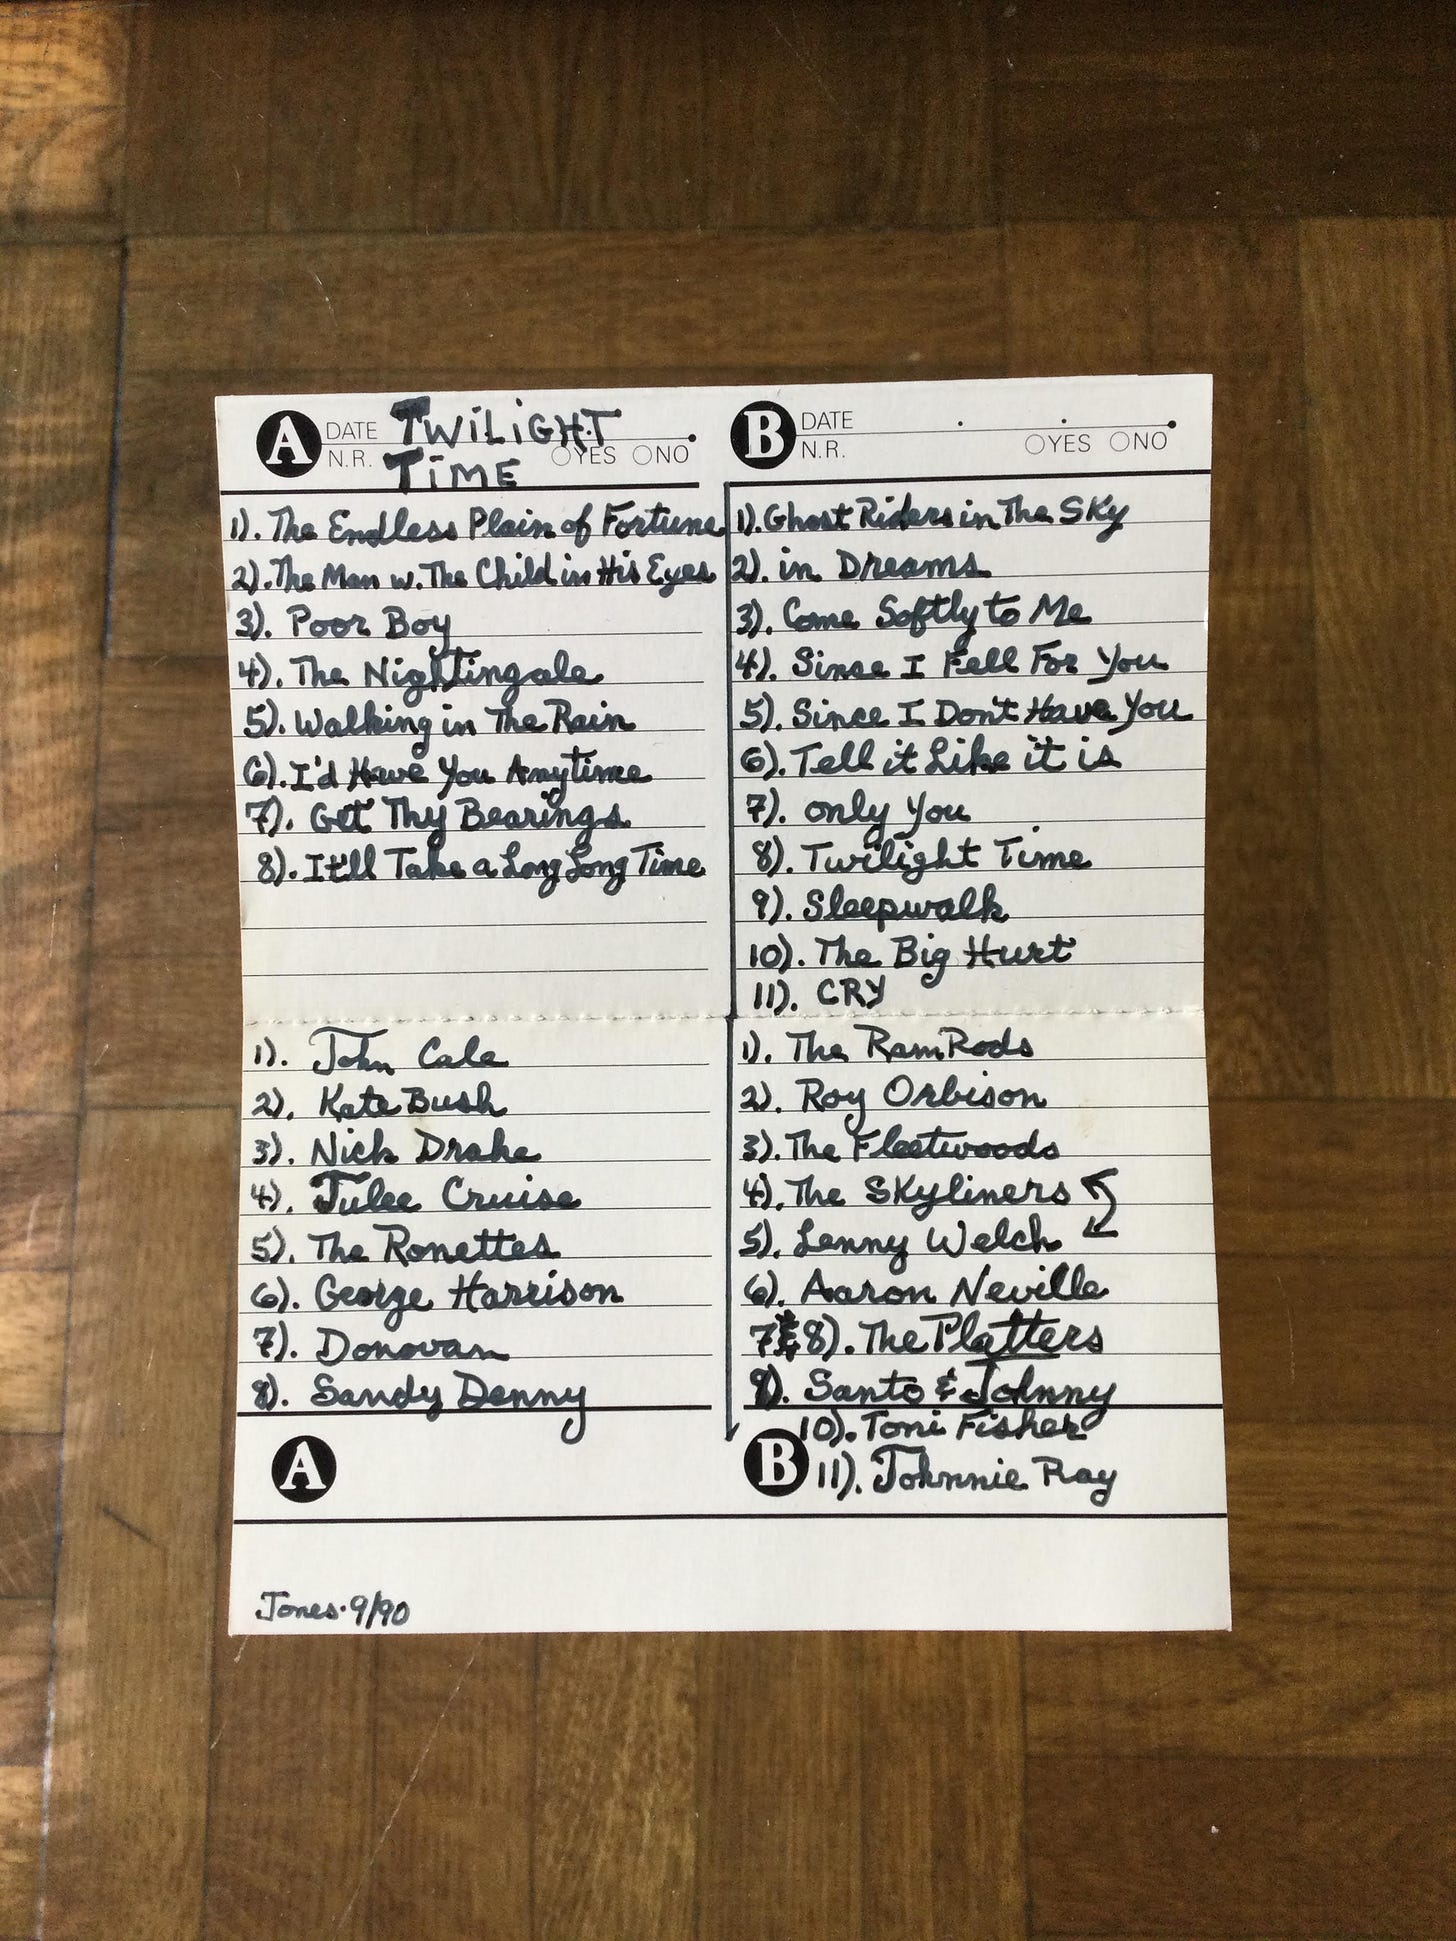 A DATE TWiLiGHT
N.R. TiME YES NO
1). The Endless Plain of Fortune
2). The Man w. The Child in His Eyes
3). Poor Boy
4). The Nightingale
5). Walking in The Rain
6). I'd Have You Anytime
7). Get Thy Bearings
8). It'll Take a Long Long Time
1). John Cale
2). Kate Bush
3). Nick Drake
4). Julee Cruise
5). The Ronettes
6). George Harrison
7). Donovan
8). Sandy Denny
A
B DATE
N.R. YES NO
1). Ghost Riders in The Sky
2). in Dreams
3). Come Softly to Me
4). Since I Fell For You
5). Since I Don't Have You
6). Tell it Like it is
7). only You
8). Twilight Time
9). Sleepwalk
10). The Big Hurt
11). CRY
1). The RamRods
2). Roy Orbison
3). The Fleetwoods
4). The Skyliners
5). Lenny Welch
6). Aaron Neville
7 & 8). The Platters
9). Santo & Johnny
10). Toni Fisher
B 11). Johnnie Ray
Jones·9/90